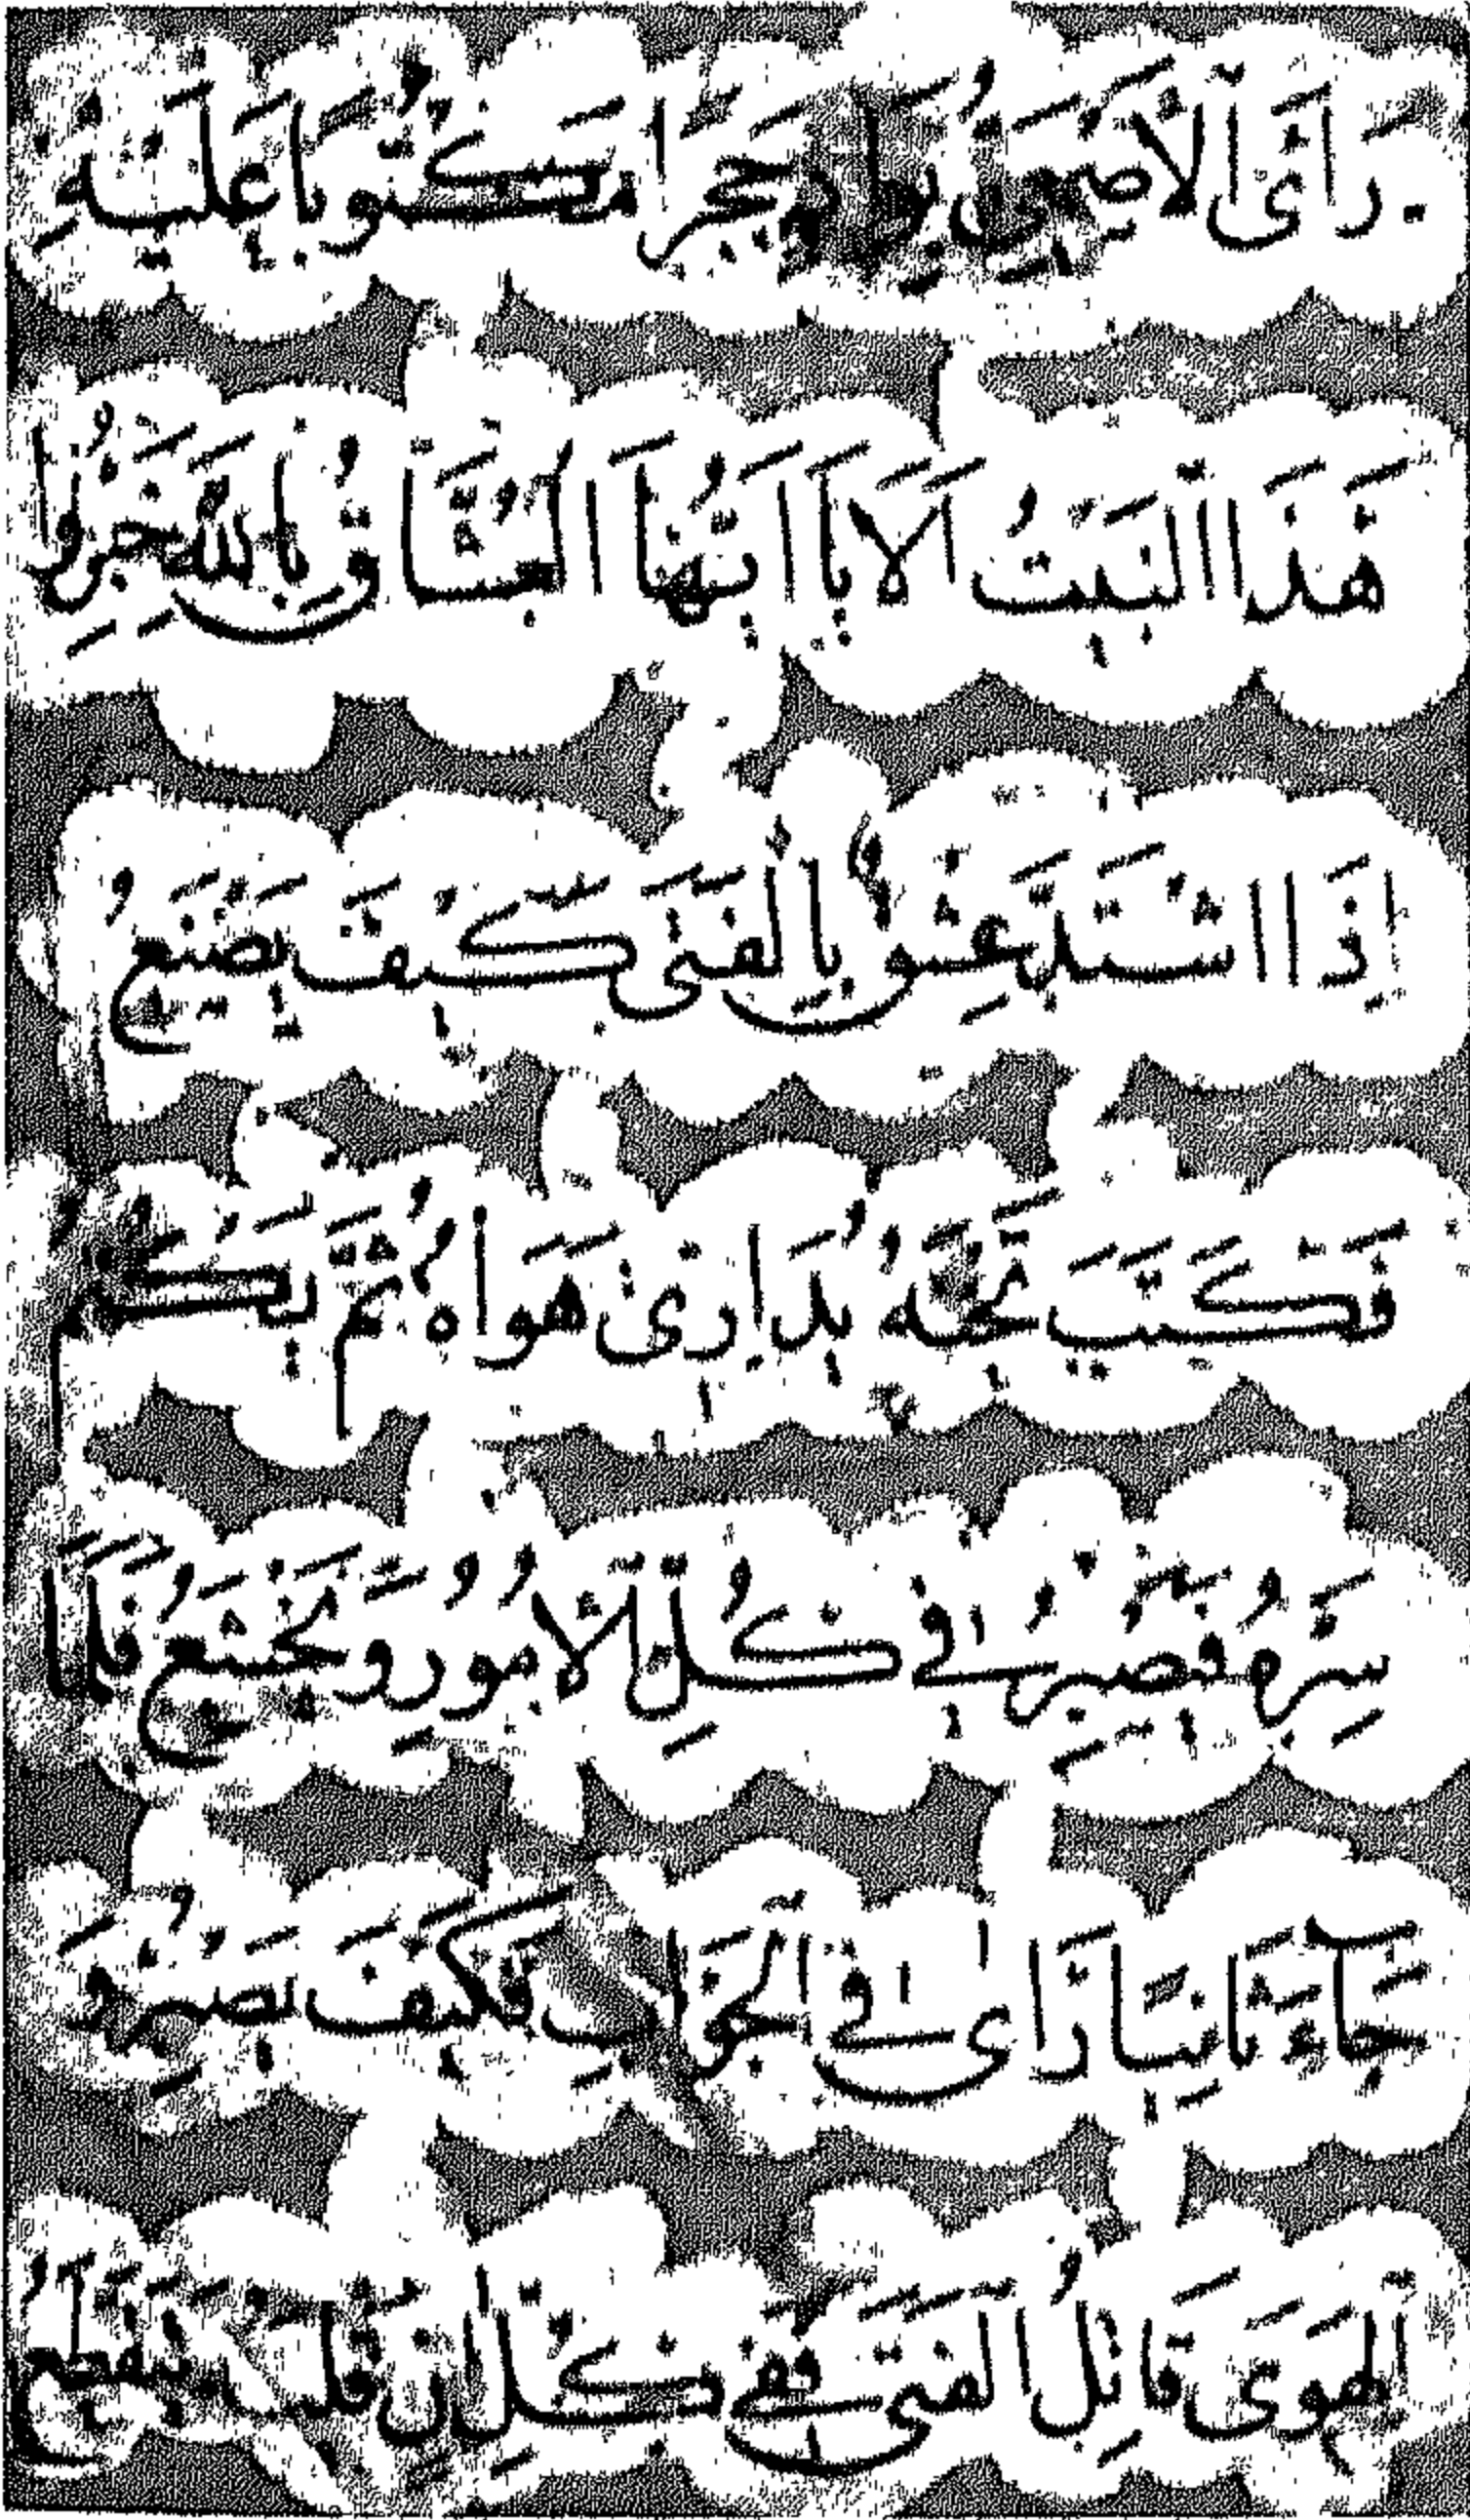 رَاَى الْاَصْمَعِيُّ بِوَادٍ حَجَرًا مَكْتُوبًا عَلَيْهِ
هَذَا الْبَيْتُ اَلَا يَا اَيُّهَا الْعُشَّاقُ بِاللّٰهِ خَبِّرُوا
اِذَا اشْتَدَّ عِشْقٌ بِالْفَتَى كَيْفَ يَصْنَعُ
فَكَتَبَ تَحْتَهُ يُدَارِى هَوَاهُ ثُمَّ يَكْتُمُ
سِرَّهُ وَيَصْبِرُ فِى كُلِّ الْاُمُورِ وَيَخْشَعُ فَلَمَّا
جَآءَ ثَانِيًا رَاٰى فِى الْجَوَابِ فَكَيْفَ يَصْبِرُ وَ
الْهَوَى قَاتِلُ الْفَتَى فَفِى كُلِّ اٰنٍ قَلْبُهُ يَنْقَطِعُ